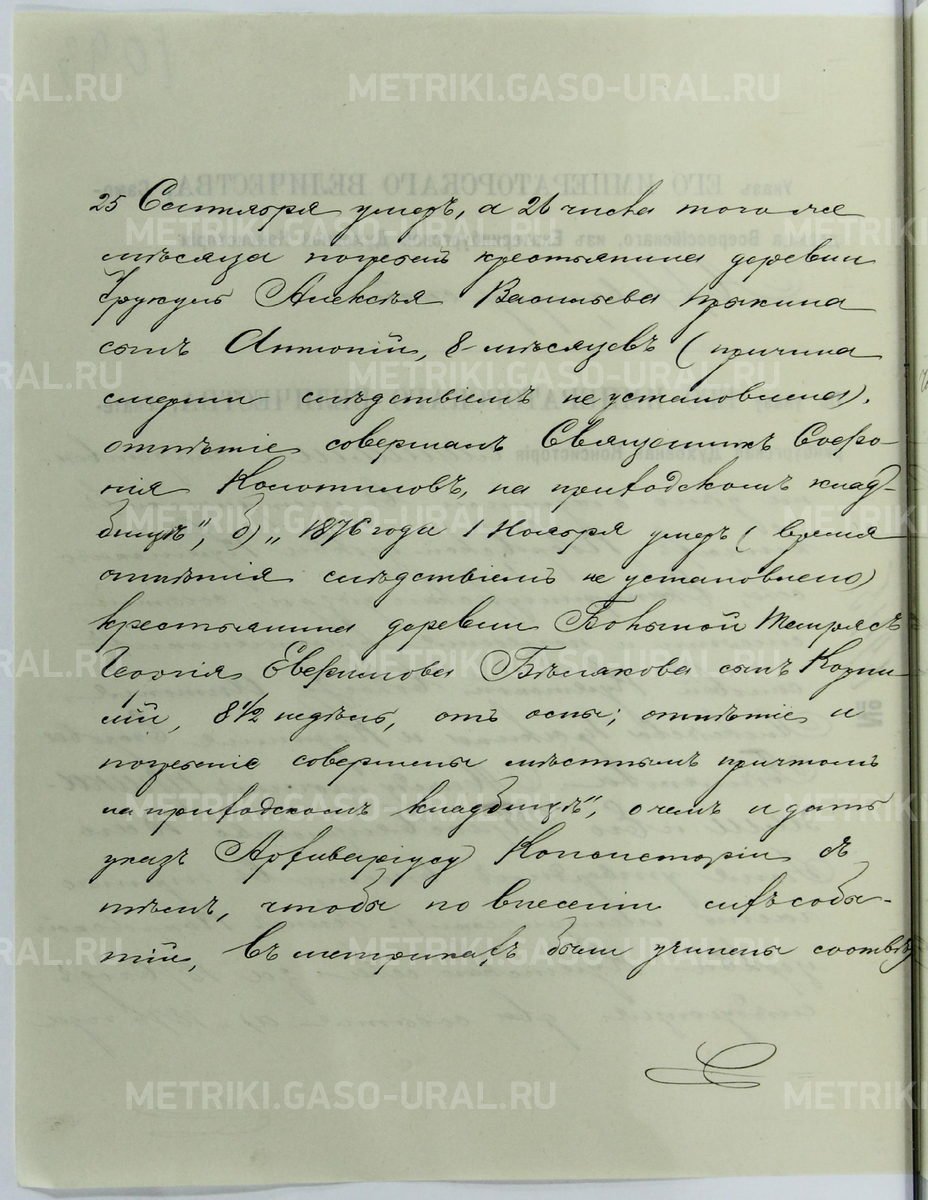 METRIKI.GASO-URAL.RU
25 Сентября умеръ, а 26 числа того же
мѣсяца погребенъ крестьянина деревни
Алексѣя Васильева
сынъ Антоній, 8 мѣсяцевъ (причина
смерти слѣдствіемъ не установлена),
отпѣтіе совершалъ Священникъ Софро-
нія Коломиловъ, на приходскомъ клад-
бищѣ", б) „1876 года 1 Ноября умеръ (время
отпѣтія слѣдствіемъ не установлено)
крестьянина деревни
Георгія Евфимова Бѣлякова сынъ Корни-
лій, 8 1/2 недѣль, отъ оспы; отпѣтіе и
погребеніе совершены мѣстнымъ причтомъ
на приходскомъ кладбищѣ", о чемъ и дать
указъ Архиваріусу Консисторіи съ
тѣмъ, чтобы по внесеніи сихъ собы-
тій, въ метрикахъ были учинены соотвѣт